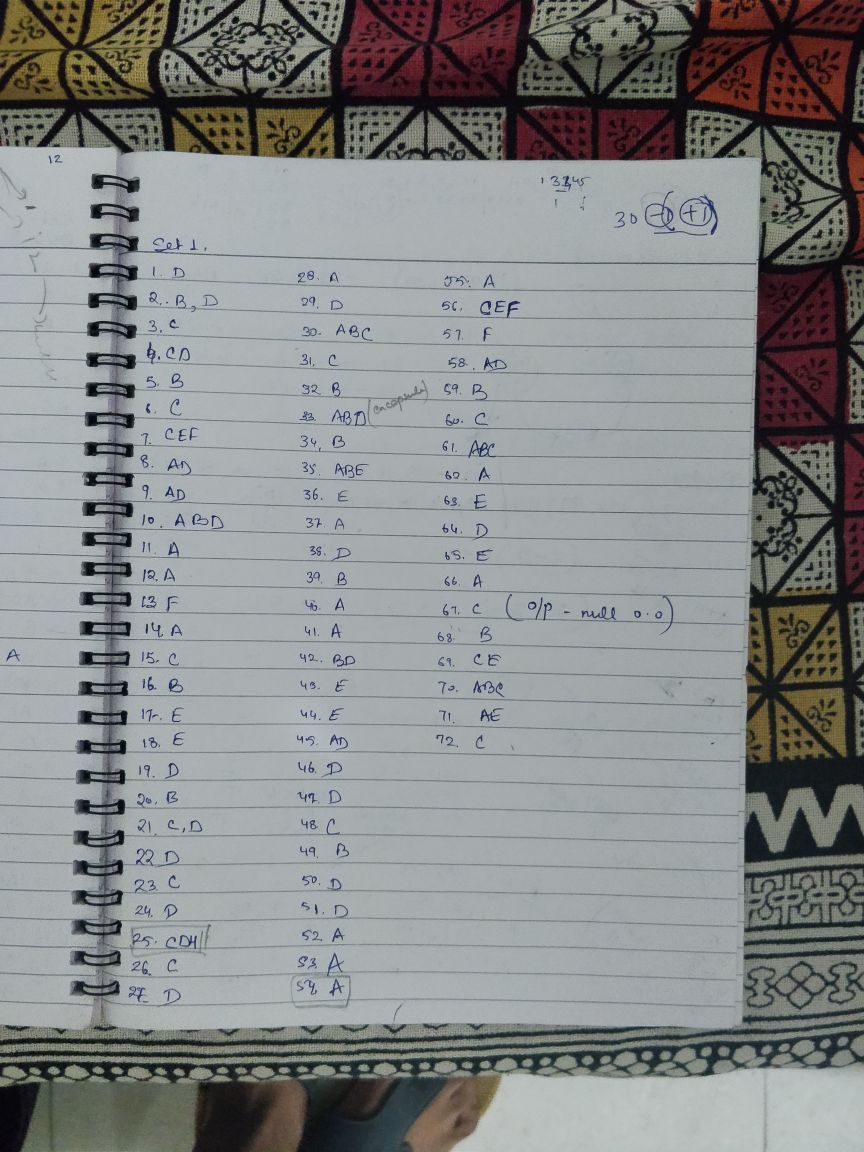 12
30 -1 +1
Set 1.
1. D
2. B, D
3. C
4. CD
5. B
6. C
7. CEF
8. AD
9. AD
10. ABD
11. A
12. A
13 F
14. A
15. C
16. B
17. E
18. E
19. D
20. B
21. C, D
22 D
23 C
24. D
25. CDH
26. C
27. D
28. A
29. D
30. ABC
31. C
32 B
33. ABD (encapsula)
34, B
35. ABE
36. E
37. A
38. D
39. B
40. A
41. A
42. BD
43. E
44. E
45. AD
46. D
47. D
48. C
49. B
50. D
51. D
52. A
53. A
54. A
55. A
56. CEF
57. F
58. AD
59. B
60. C
61. ABC
62. A
63. E
64. D
65. E
66. A
67. C (o/p - null 0.0)
68. B
69. CE
70. ABC
71. AE
72. C
A